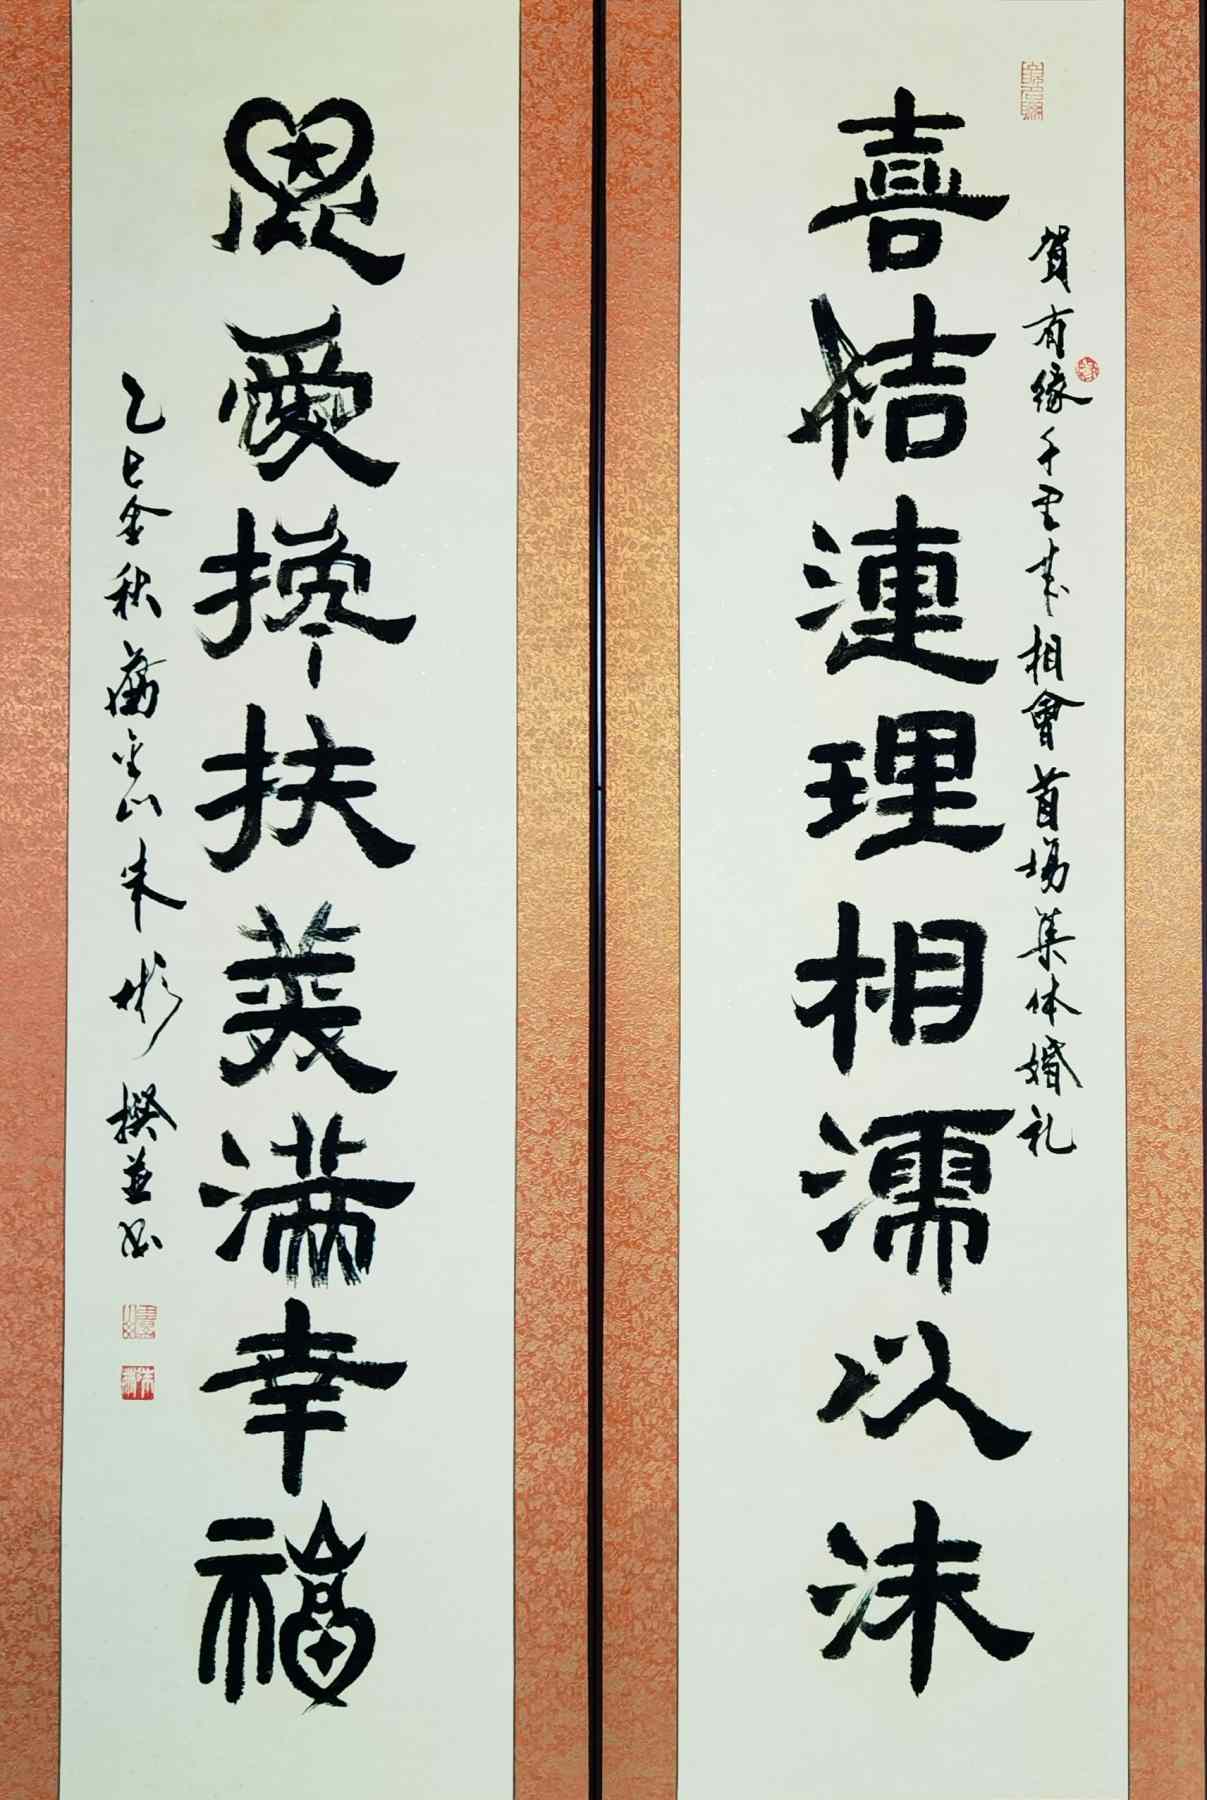 賀有緣千里来相會首場集体婚礼
喜結連理相濡以沫
恩愛攙扶美满幸福
乙巳金秋 山朱彬撰並书